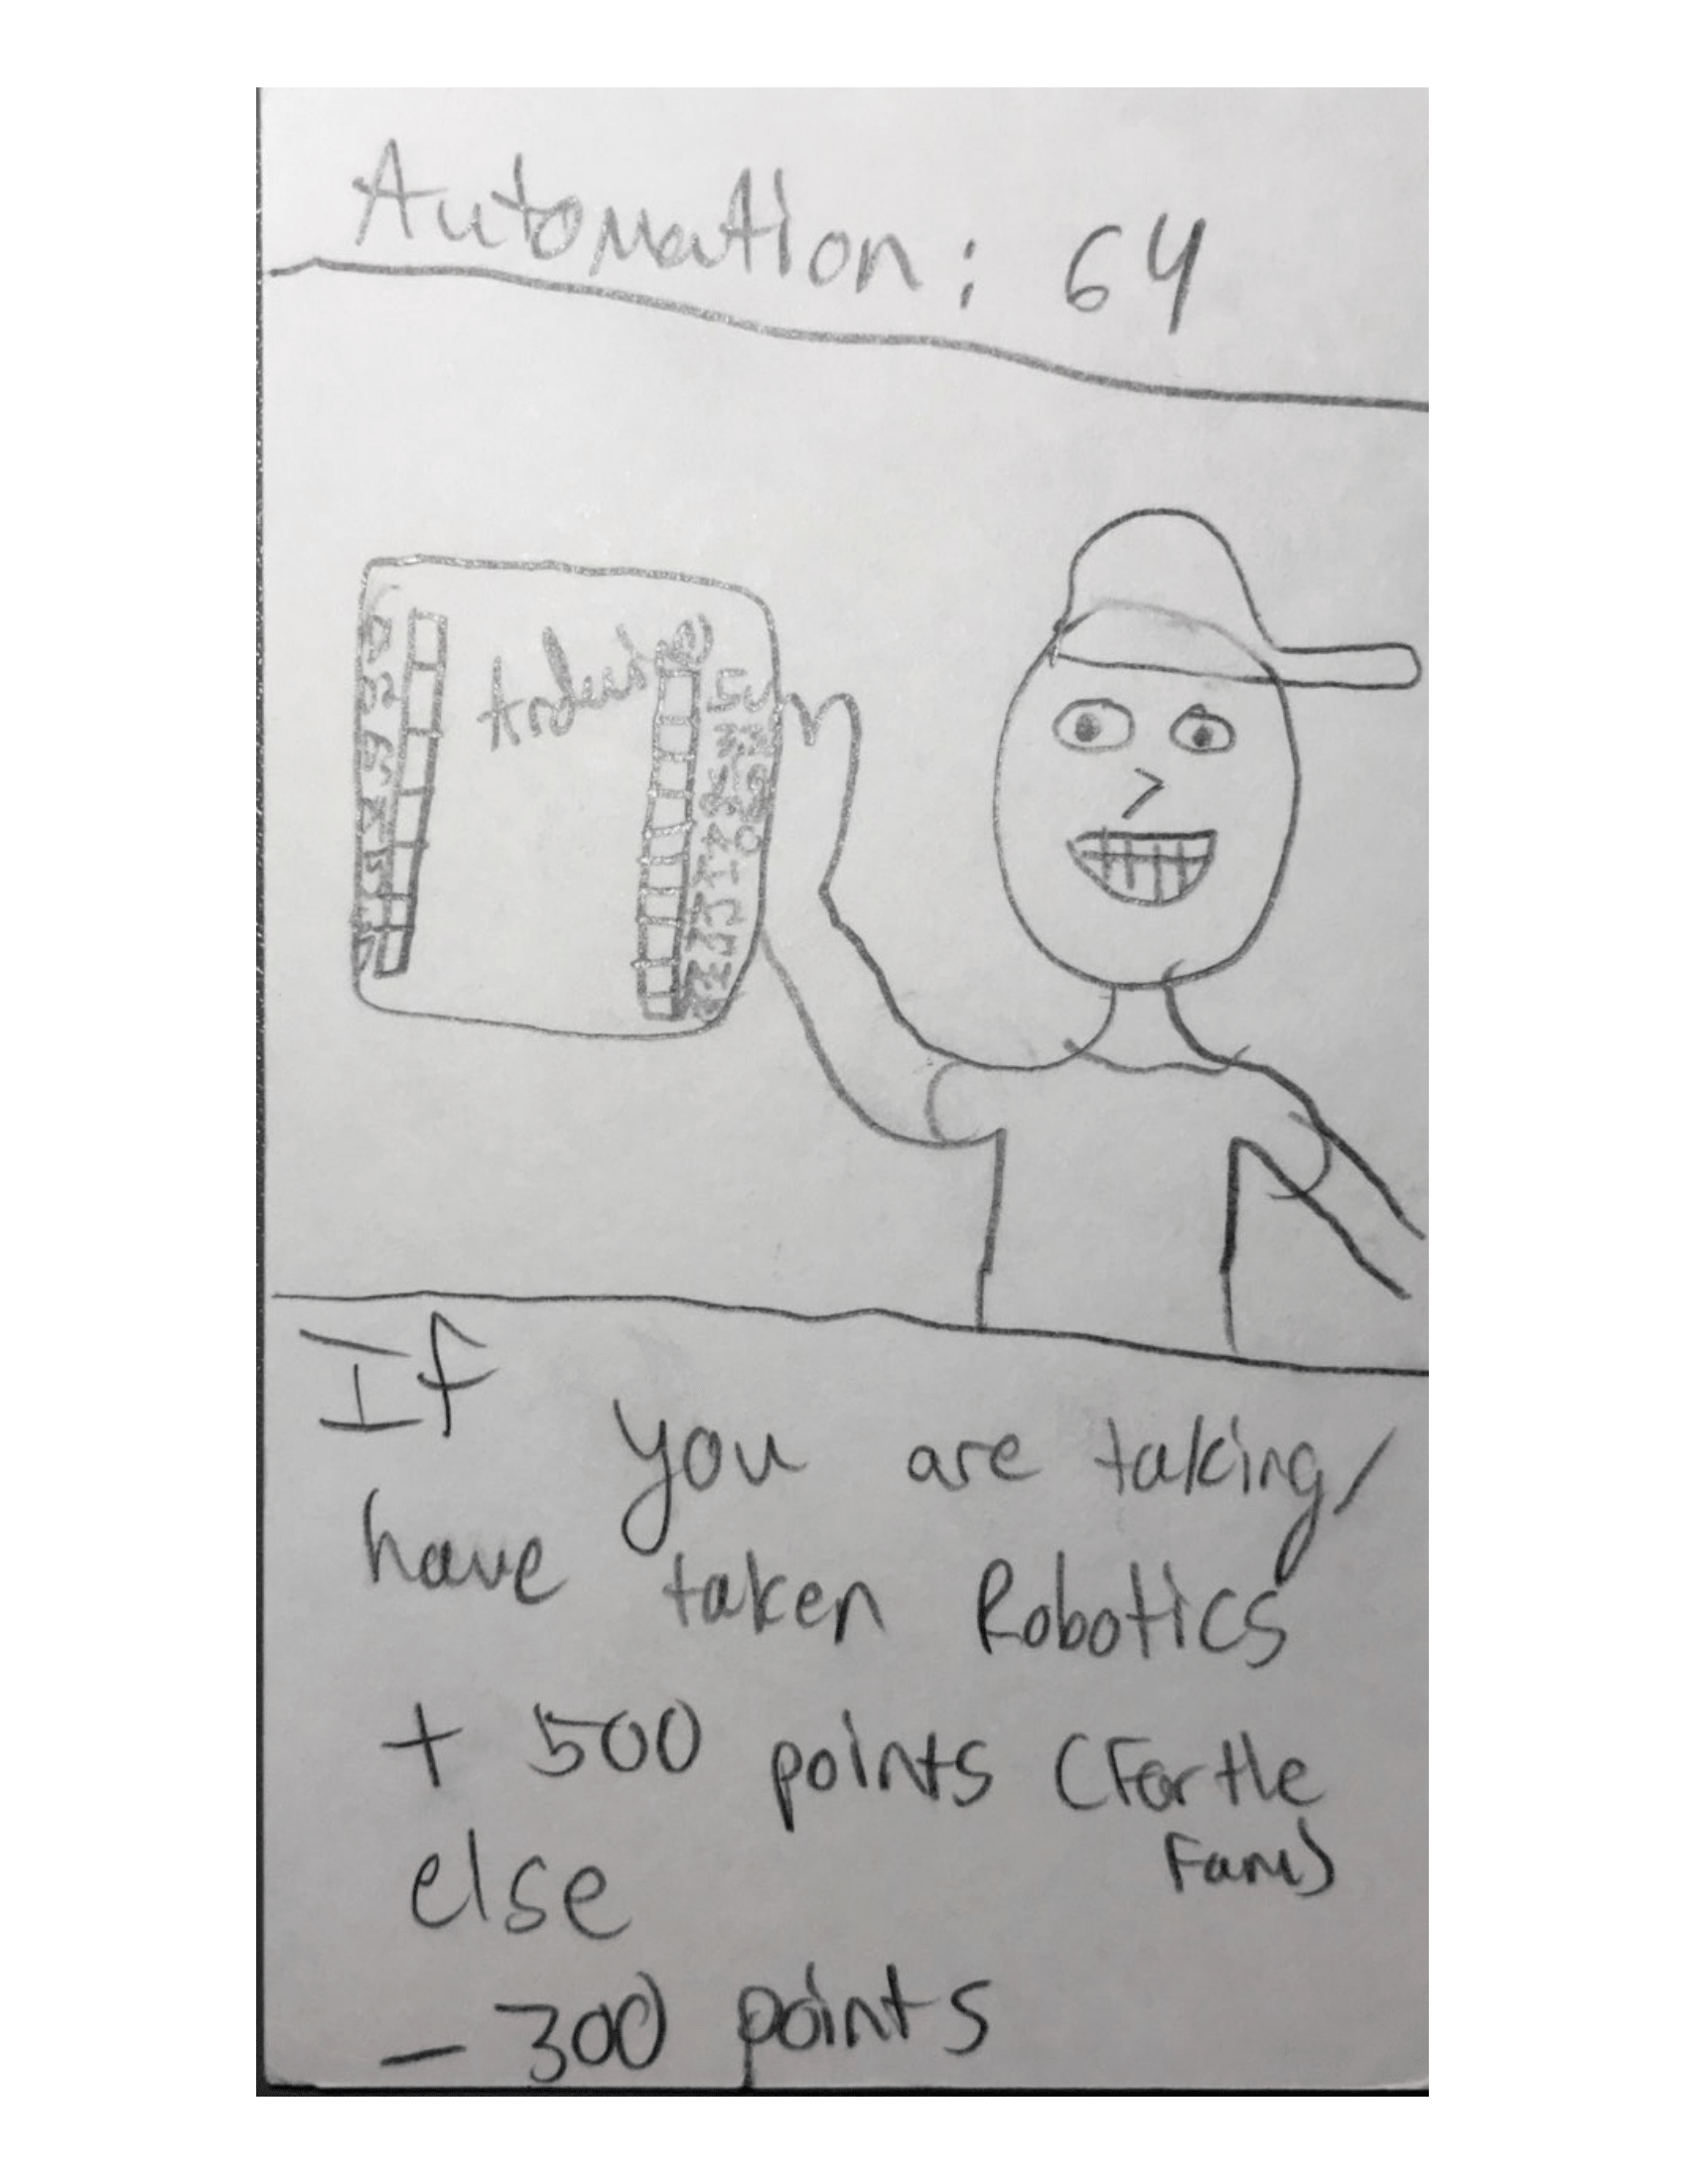 Automation: 64
Arduino
5v
If you are taking/
have taken Robotics
+ 500 points (For the
Fans)
else
- 300 points